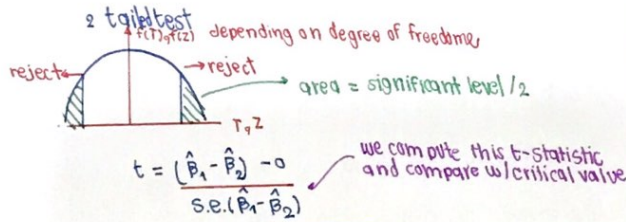 2 tailed test
f(T), f(Z) depending on degree of freedome,
reject
reject
area = significant level/2
T, Z
t = (β̂₁ - β̂₂) - 0
s.e.(β̂₁ - β̂₂)
we compute this t-statistic
and compare w/critical value